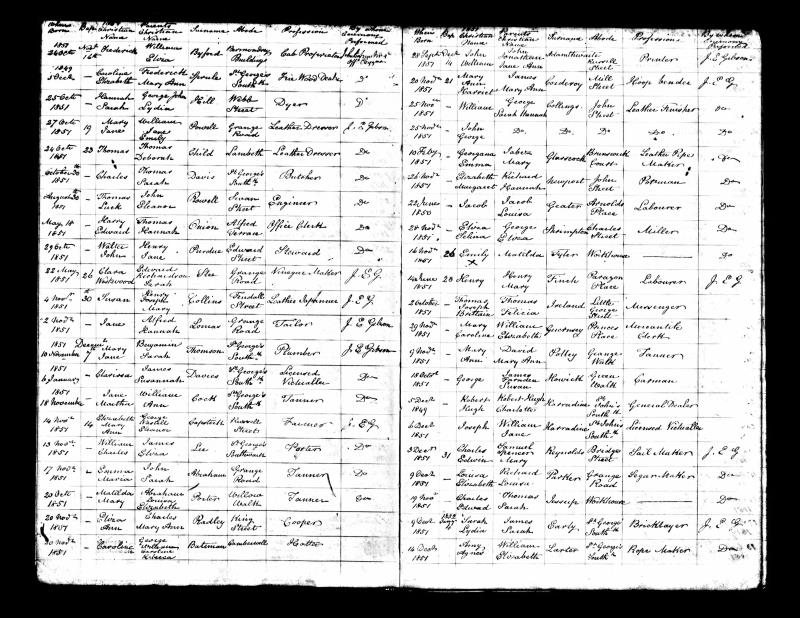 When Born Bap 1851 Christian Name Parents Christian Name Surname Abode Profession By whom Ceremony Performed
1851 24 Oct Novr 16th Frederick William Eliza Byford Bermondsey Buildings Cab Proprietor
1849 5 Decr – Caroline Elizabeth Frederick Mary Ann Sproule St George's South Fire Wood Dealer Do
25 Octr 1851 – Hannah Sarah George John Lydia Hill Webb Street Dyer Do
27 Oct 1851 19 Mary Jane William Jane Emily Powell Grange Leather Dresser J. E. Gibson
24 Octr 1851 23 Thomas Thomas Deborah Child Lambeth Leather Dresser Do
October 30 1851 – Charles Thomas Sarah Davis St George's South Butcher Do
August 30 1851 – Thomas Luck John Eleanor Rowell Swan Street Engineer Do
May 14 1851 – Harry Edward Thomas Hannah Onion Alfred Terrace Office Clerk Do
29 Octr 1851 – Walter John Henry Jane Purdue Edward Street Steward Do
22 May 1851 26 Clara Edward Richardson Sarah Slee Grange Road Vinegar Maker J. E. G
4 Novr 1851 30 Susan Henry Joseph Mary Collins Kendall Street Leather Japanner J. E. G.
2 Novr 1851 – Jane Alfred Hannah Lomas Grange Road Tailor J. E. Gibson
1851 10 November Decemr 7th Mary Jane Benjamin Sarah Thomson St George's South Plumber J. E. Gibson
1851 6 January – Clarissa James Susannah Davies St George's South Licensed Victualler Do
1851 18 November – Jane Martha William Ann Cock St George's South Tanner Do
14 Novr 1851 14 Elizabeth Mary Ann George Eleanor Capstick Russell Street Farmer J. E. G
13 Novr 1851 – William Charles James Eliza Lee St George's Southwark Porter Do
17 Novr 1851 – Emma Maria John Sarah Abraham Grange Road Tanner Do
20 Octr 1851 – Matilda Mary Abraham Louisa Elizabeth Porter Willow Walk Tanner Do
20 Novr 1851 – Eliza Ann Charles Mary Ann Radley King Street Cooper
20 Novr 1851 – Caroline George William Caroline Rebecca Bateman Camberwell Hatter Do
When Born Bap 1851 Christian Name Parents Christian Name Surname Abode Profession By whom Ceremony Performed
28 Sept 1851 Decr 14 John William Jonathan Jane Ann Adamthwaite Russell Street Printer J. E. Gibson
20 Novr 1851 21 Mary Ann Harriet James Mary Ann Corderoy Mill Street Hoop bender J. E. G
25 Novr 1851 – William George Sarah Hannah Collings John Street Leather Finisher Do
25 Novr 1851 – John George Do Do Do Do Do
10 Feby 1851 – Georgana Emma Jabez Mary Glasscock Brunswick Court Leather Pipe Maker Do
26 Novr 1851 – Elizabeth Margaret Richard Hannah Newport John Street Potman Do
22 June 1850 – Jacob Jacob Louisa Geater Arnolds Place Labourer Do
24 Novr 1851 – Eliza Selina George Eliza Shrimpton Charles Street Miller Do
1851 26 Emily Matilda Tyler Workhouse — Do
4 June 1851 28 Henry Henry Mary Finch Paragon Place Labourer J. E. G
26 October 1851 – Thomas Joseph Thomas Felicia Ireland Little George Street Messenger
29 Novr 1851 – Mary Caroline William Elizabeth Guernsey Princes Place Mercantile Clerk
9 Novr 1851 – Mary Ann David Mary Ann Polley Grange Walk Tanner
18 Octr 1851 – George James Susan Howick Green Walk Carman
5 Decr 1849 – Robert Hugh Robert Hugh Charlotte Harradine St John's South General Dealer
6 Decr 1851 – Joseph William Jane Harradine St John's South Licensed Victualler
3 Decr 1851 31 Charles Edwin Samuel Spencer Mary Reynolds Bridge Street Sail Maker J. E. G
9 Octr 1851 – Louisa Elizabeth Richard Louisa Parker Grange Road Segar Maker Do
19 Novr 1851 – Charles Edward Thomas Sarah Jessup Workhouse — Do
9 Octr 1851 1852 Sarah Lydia James Sarah Early St George's South Bricklayer J. E. G
14 Decr 1851 – Amy Agnes William Elizabeth Larter St George's South Rope Maker Do